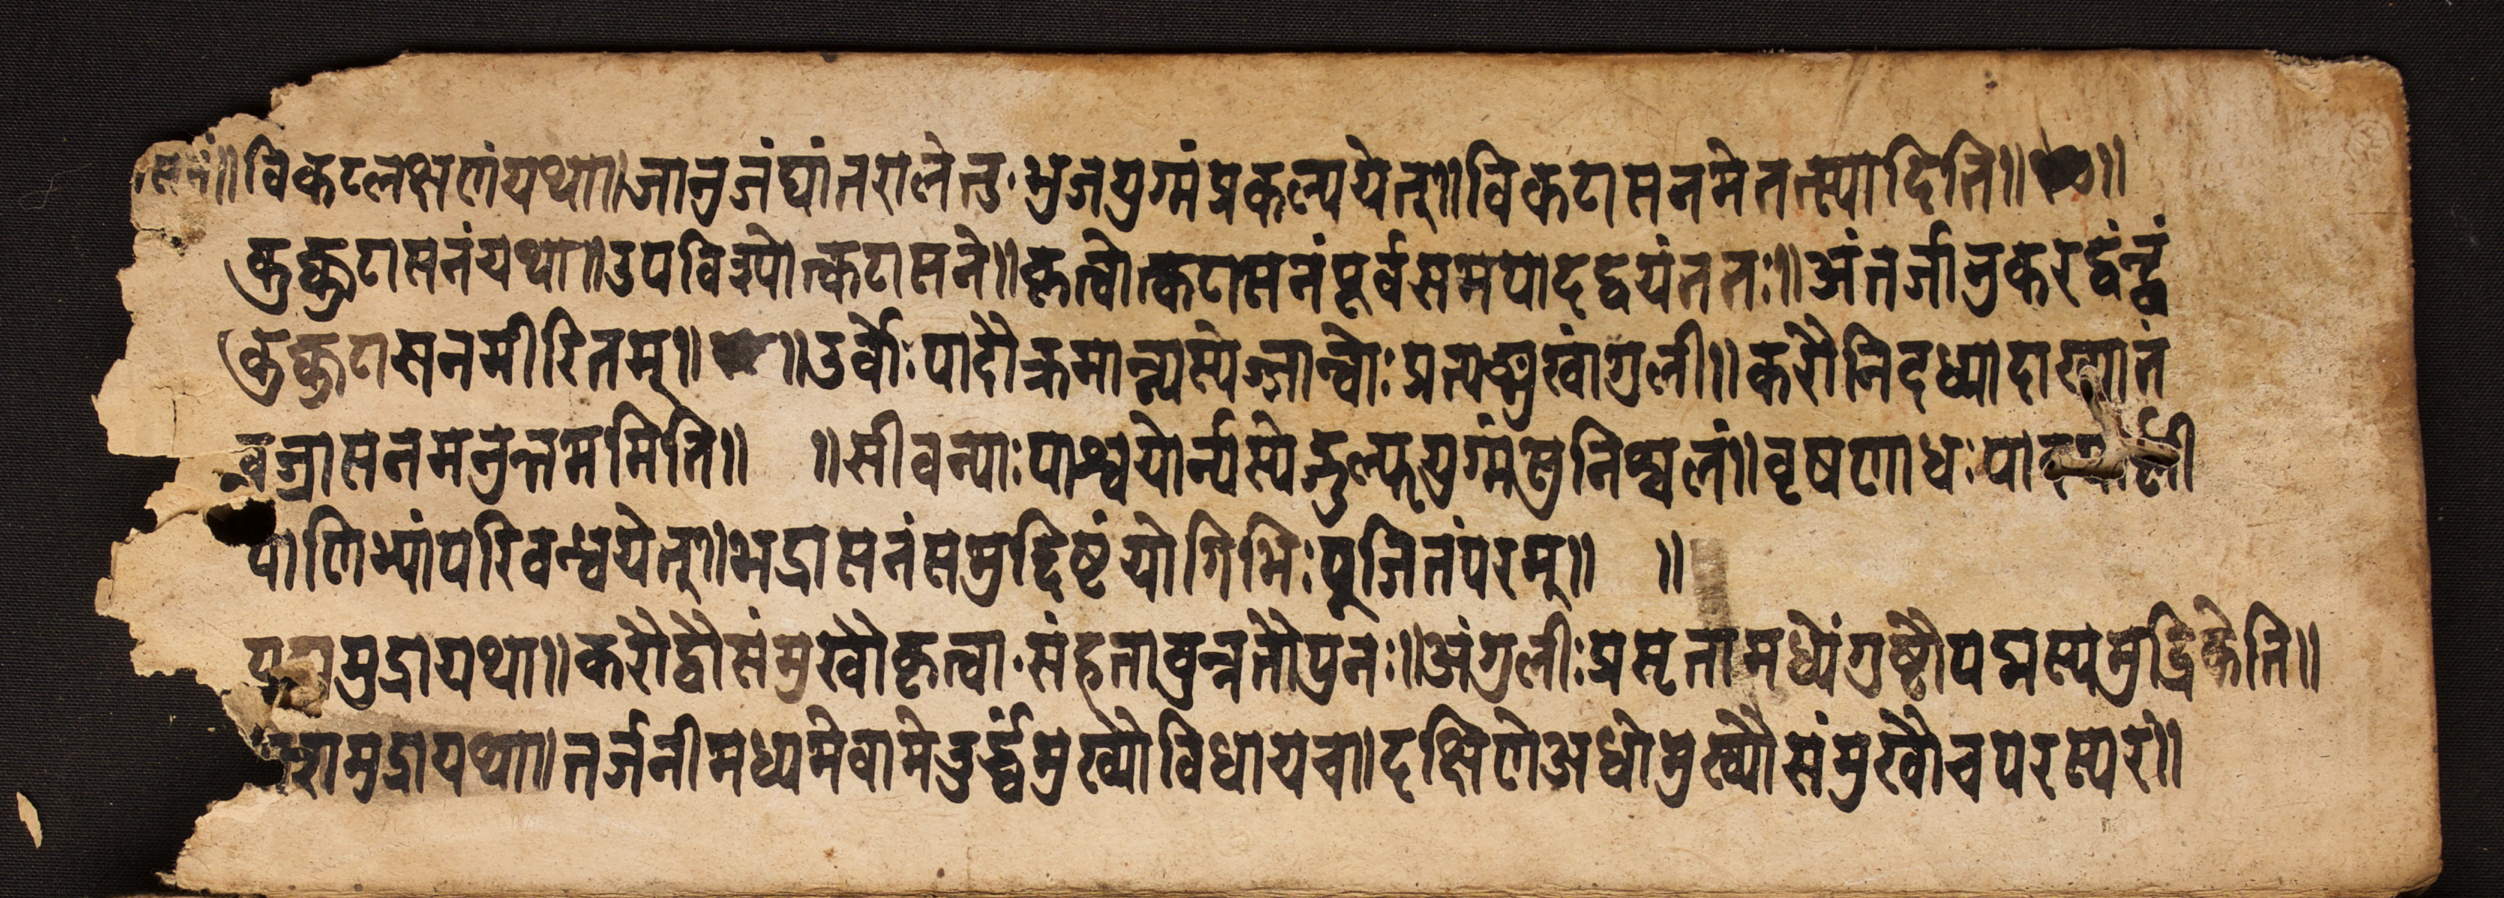 सनं॥विकटलक्षणंयथा॥जानुजंघांतरालेतु·भुजयुग्मंप्रकल्पयेत्॥विकटासनमेतत्स्यादिति॥ ॥
कुक्कुटासनंयथा॥उपविश्योत्कटासने॥कृत्वोत्कटासनंपूर्वसमपादद्वयंततः॥अंतर्जानुकरद्वंन्द्वं
कुक्कुटासनमीरितम्॥ ॥उर्वोःपादौक्रमान्न्यस्येज्जान्वोःप्रत्यङ्मुखांगुली॥करौनिदध्यादाख्यातं
वज्रासनमनुत्तममिति॥ ॥सीवन्याःपार्श्वयोर्न्यस्येद्गुल्फयुग्मंसुनिश्चलं॥वृषणाधःपा
पाणिभ्यांपरिवन्धयेत्॥भद्रासनंसमुद्दिष्टंयोगिभिःपूजितंपरम्॥ ॥
मुद्रायथा॥करौद्वौसंमुखौकृत्वा·संहतावुन्नतौपुनः॥अंगुलीःप्रसृतामध्येंगुष्ठौपद्मस्यमुद्रिकेति॥
मुद्रायथा॥तर्जनीमध्यमेवामेउर्द्ध्वंमुख्यौविधायच॥दक्षिणेअधोमुख्यौसंमुखौचपरस्परं॥